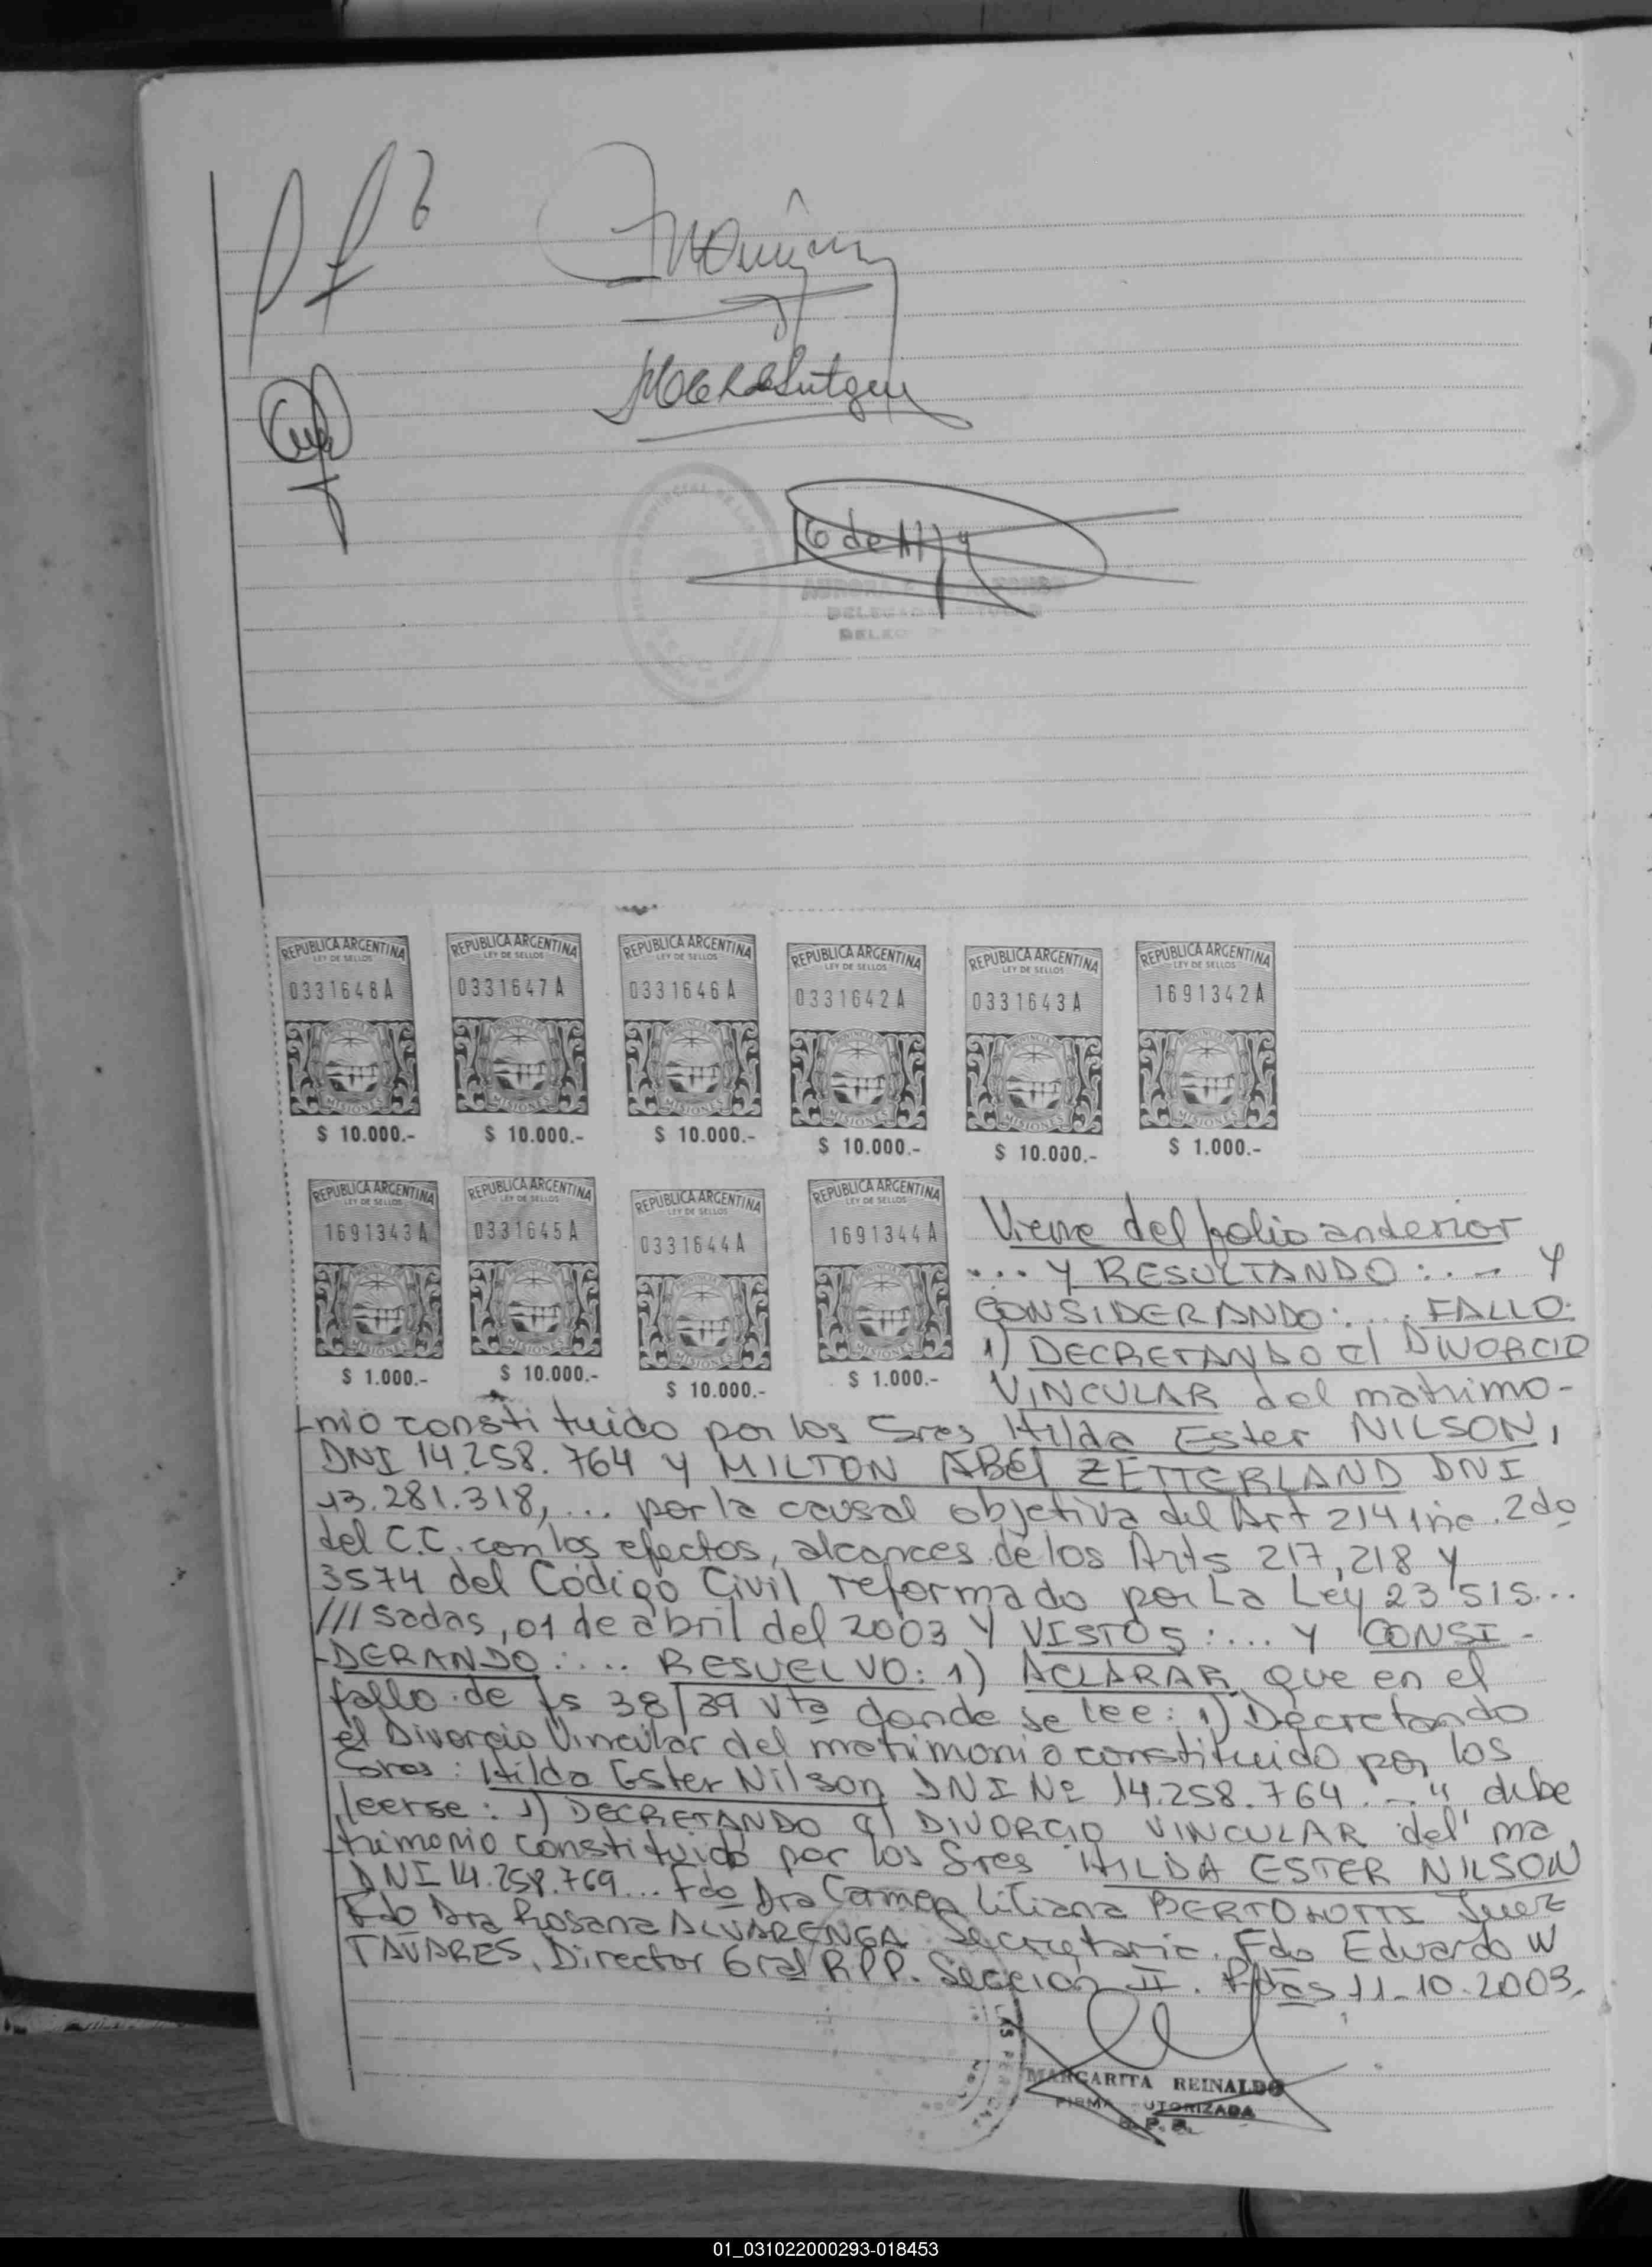 REPUBLICA ARGENTINA
LEY DE SELLOS
0331648A
MISIONES
$ 10.000.-
REPUBLICA ARGENTINA
LEY DE SELLOS
0331647A
MISIONES
$ 10.000.-
REPUBLICA ARGENTINA
LEY DE SELLOS
0331646A
MISIONES
$ 10.000.-
REPUBLICA ARGENTINA
LEY DE SELLOS
0331642A
MISIONES
$ 10.000.-
REPUBLICA ARGENTINA
LEY DE SELLOS
0331643A
MISIONES
$ 10.000.-
REPUBLICA ARGENTINA
LEY DE SELLOS
1691342A
MISIONES
$ 1.000.-
REPUBLICA ARGENTINA
LEY DE SELLOS
1691343A
MISIONES
$ 1.000.-
REPUBLICA ARGENTINA
LEY DE SELLOS
0331645A
MISIONES
$ 10.000.-
REPUBLICA ARGENTINA
LEY DE SELLOS
0331644A
MISIONES
$ 10.000.-
REPUBLICA ARGENTINA
LEY DE SELLOS
1691344A
MISIONES
$ 1.000.-
Viene del folio anderior
... Y RESULTANDO: . - Y
CONSIDERANDO: ... FALLO.
1) DECRETANDO el DIVORCIO
VINCULAR del matrimo-
-nio constituido por los Sres Hilda Ester NILSON,
DNI 14.258.764 y MILTON Abel ZETTERLAND DNI
13.281.318, ... por la causal objetiva del Art 214 inc. 2do
del C.C. con los efectos, alcances de los Arts 217, 218 y
3574 del Código Civil reformado por La Ley 23515...
///sadas, 01 de abril del 2003 Y VISTOS: ... Y CONSI-
-DERANDO: ... RESUELVO: 1) ACLARAR que en el
fallo de fs 38/39 vta donde se lee: 1) Decretando
el Divorcio Vincular del matrimonio constituido por los
Sres: Hilda Ester Nilson DNI Nº 14.258.764 ..." debe
leerse: 1) DECRETANDO el DIVORCIO VINCULAR del ma
trimonio constituido por los Sres HILDA ESTER NILSON
DNI 14.258.769... Fdo Dra Carmen Liliana BERTONOTTI Juez
Fdo Dra Rosana ALVARENGA Secretaria. Fdo Eduardo W
TAVARES, Director Gral RPP. Sección II. Pdas 11-10-2003.
MARGARITA REINALDO
FIRMA AUTORIZADA
01_031022000293-018453